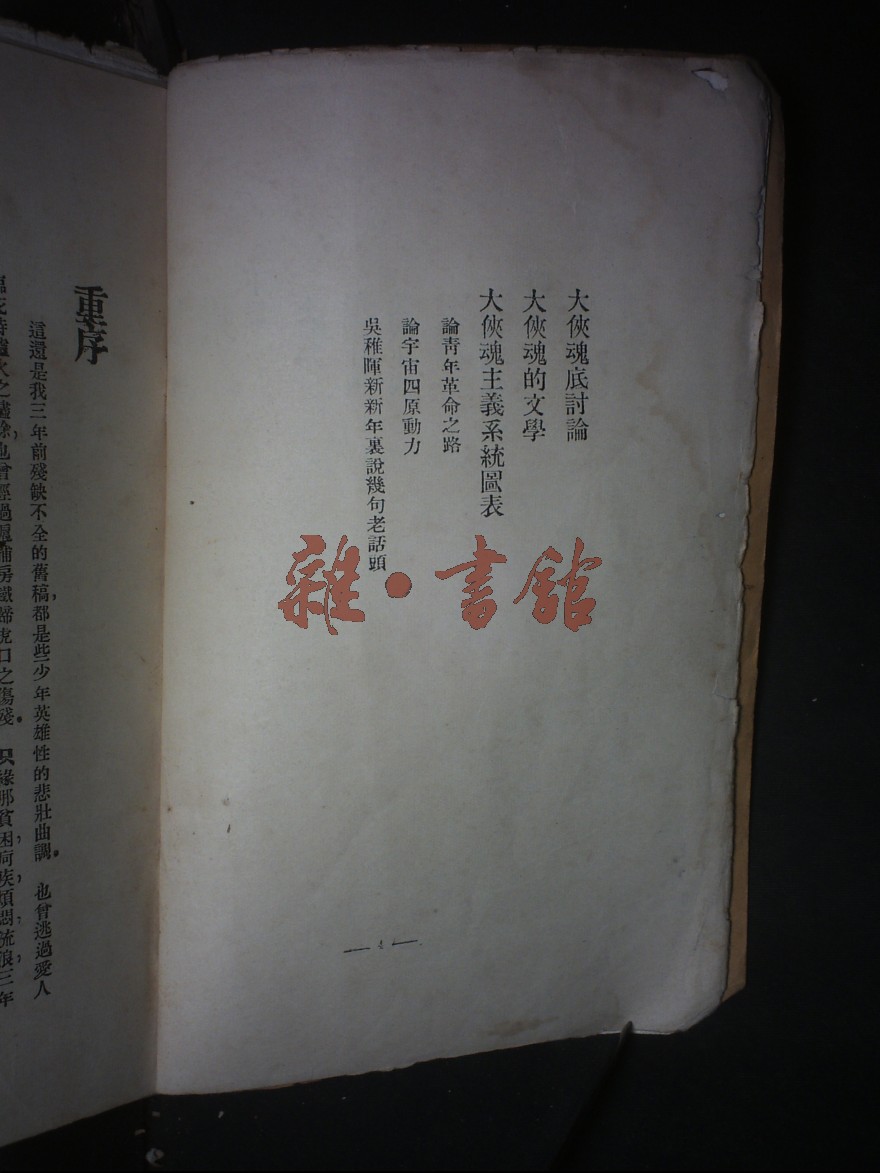 大俠魂底討論
大俠魂的文學
大俠魂主義系統圖表
論靑年革命之路
論宇宙四原動力
吳稚暉新新年裏說幾句老話頭
雜·書館
— 4 —
重序
這還是我三年前殘缺不全的舊稿，都是些少年英雄性的悲壯曲調。也曾逃過愛人
火之燼餘，也曾經過 捕房鐵蹄虎口之傷殘。只緣那貧困疴疾，煩悶，流浪，三年